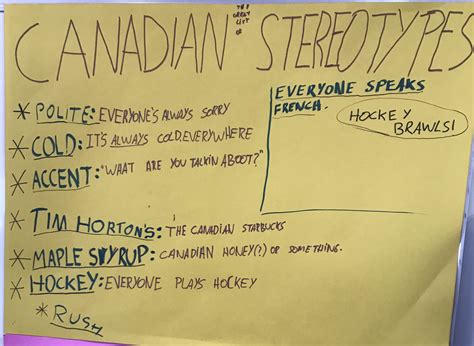 THE GREAT LIST OF
CANADIAN STEREOTYPES
* POLITE: EVERYONE'S ALWAYS SORRY
* COLD: IT'S ALWAYS COLD, EVERYWHERE
* ACCENT: "WHAT ARE YOU TALKIN ABOOT?"
* TIM HORTON'S: THE CANADIAN STARBUCKS
* MAPLE SYRUP: CANADIAN HONEY(?) OR SOMETHING.
* HOCKEY: EVERYONE PLAYS HOCKEY
* RUSH
EVERYONE SPEAKS
FRENCH.
HOCKEY
BRAWLS!